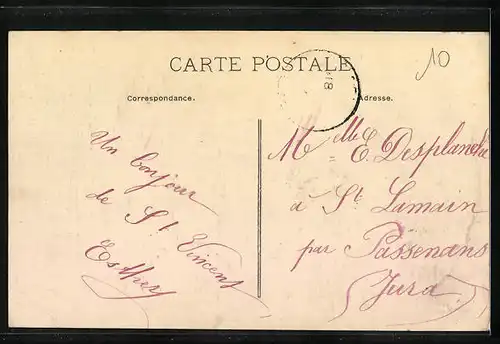 10
CARTE POSTALE
Correspondance.
Adresse.
Un bonjour
de St Vincent
Esther
Mlle E. Desplanche
à St Lamain
par Passenans
Jura